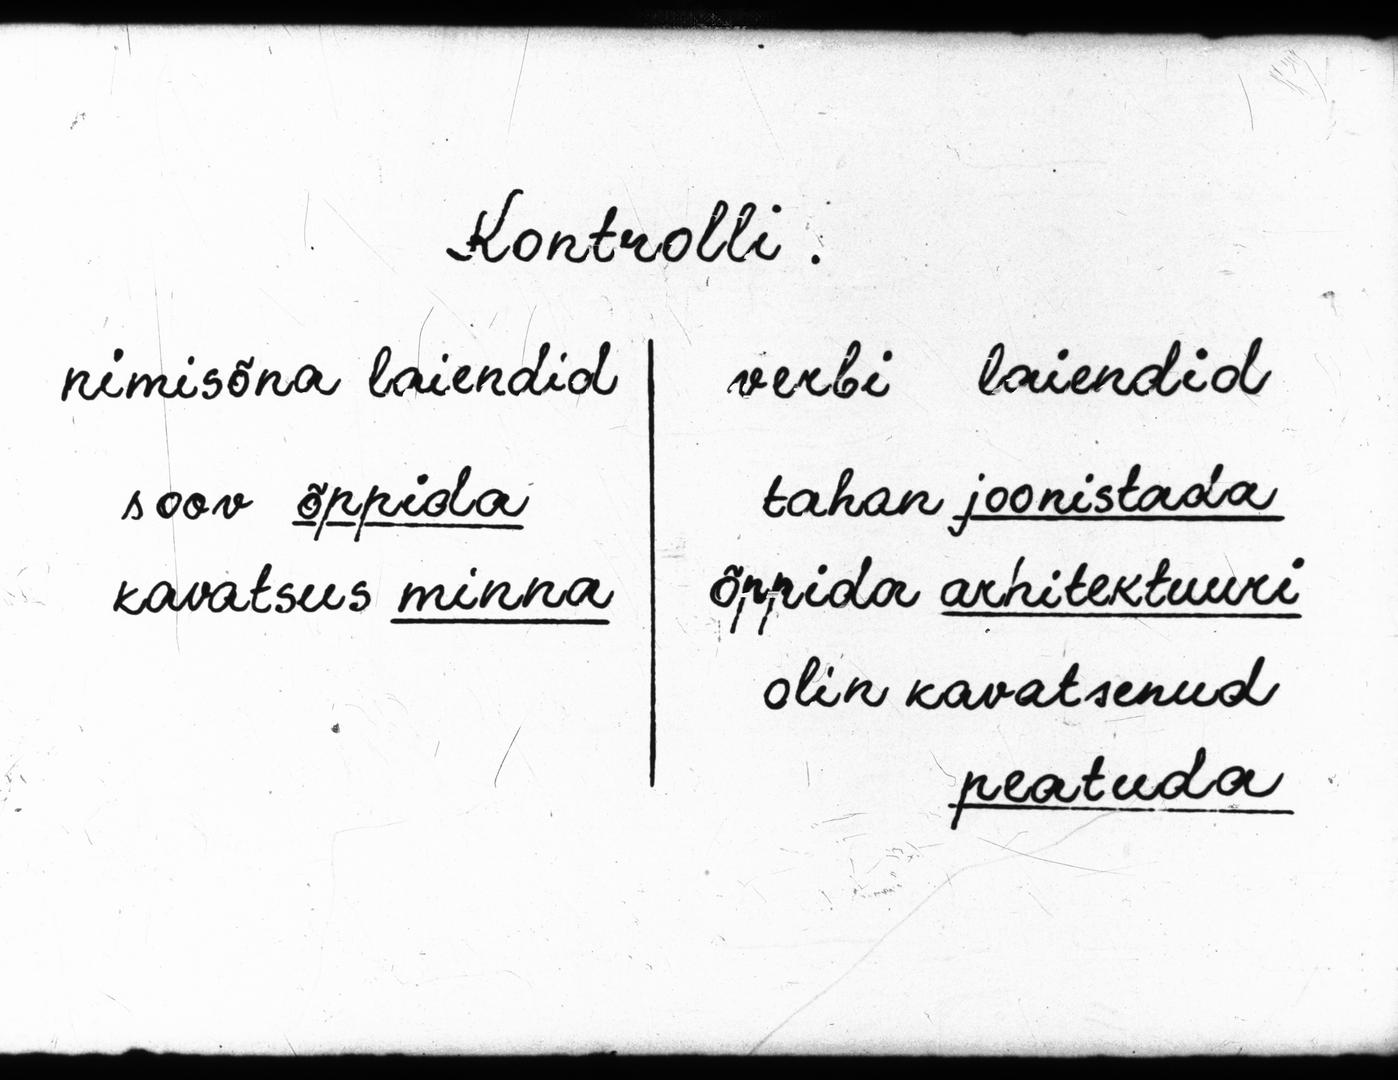 Kontrolli.
nimisõna laiendid
soov õppida
kavatsus minna
verbi laiendid
tahan joonistada
õppida arhitektuuri
olin kavatsenud
peatuda